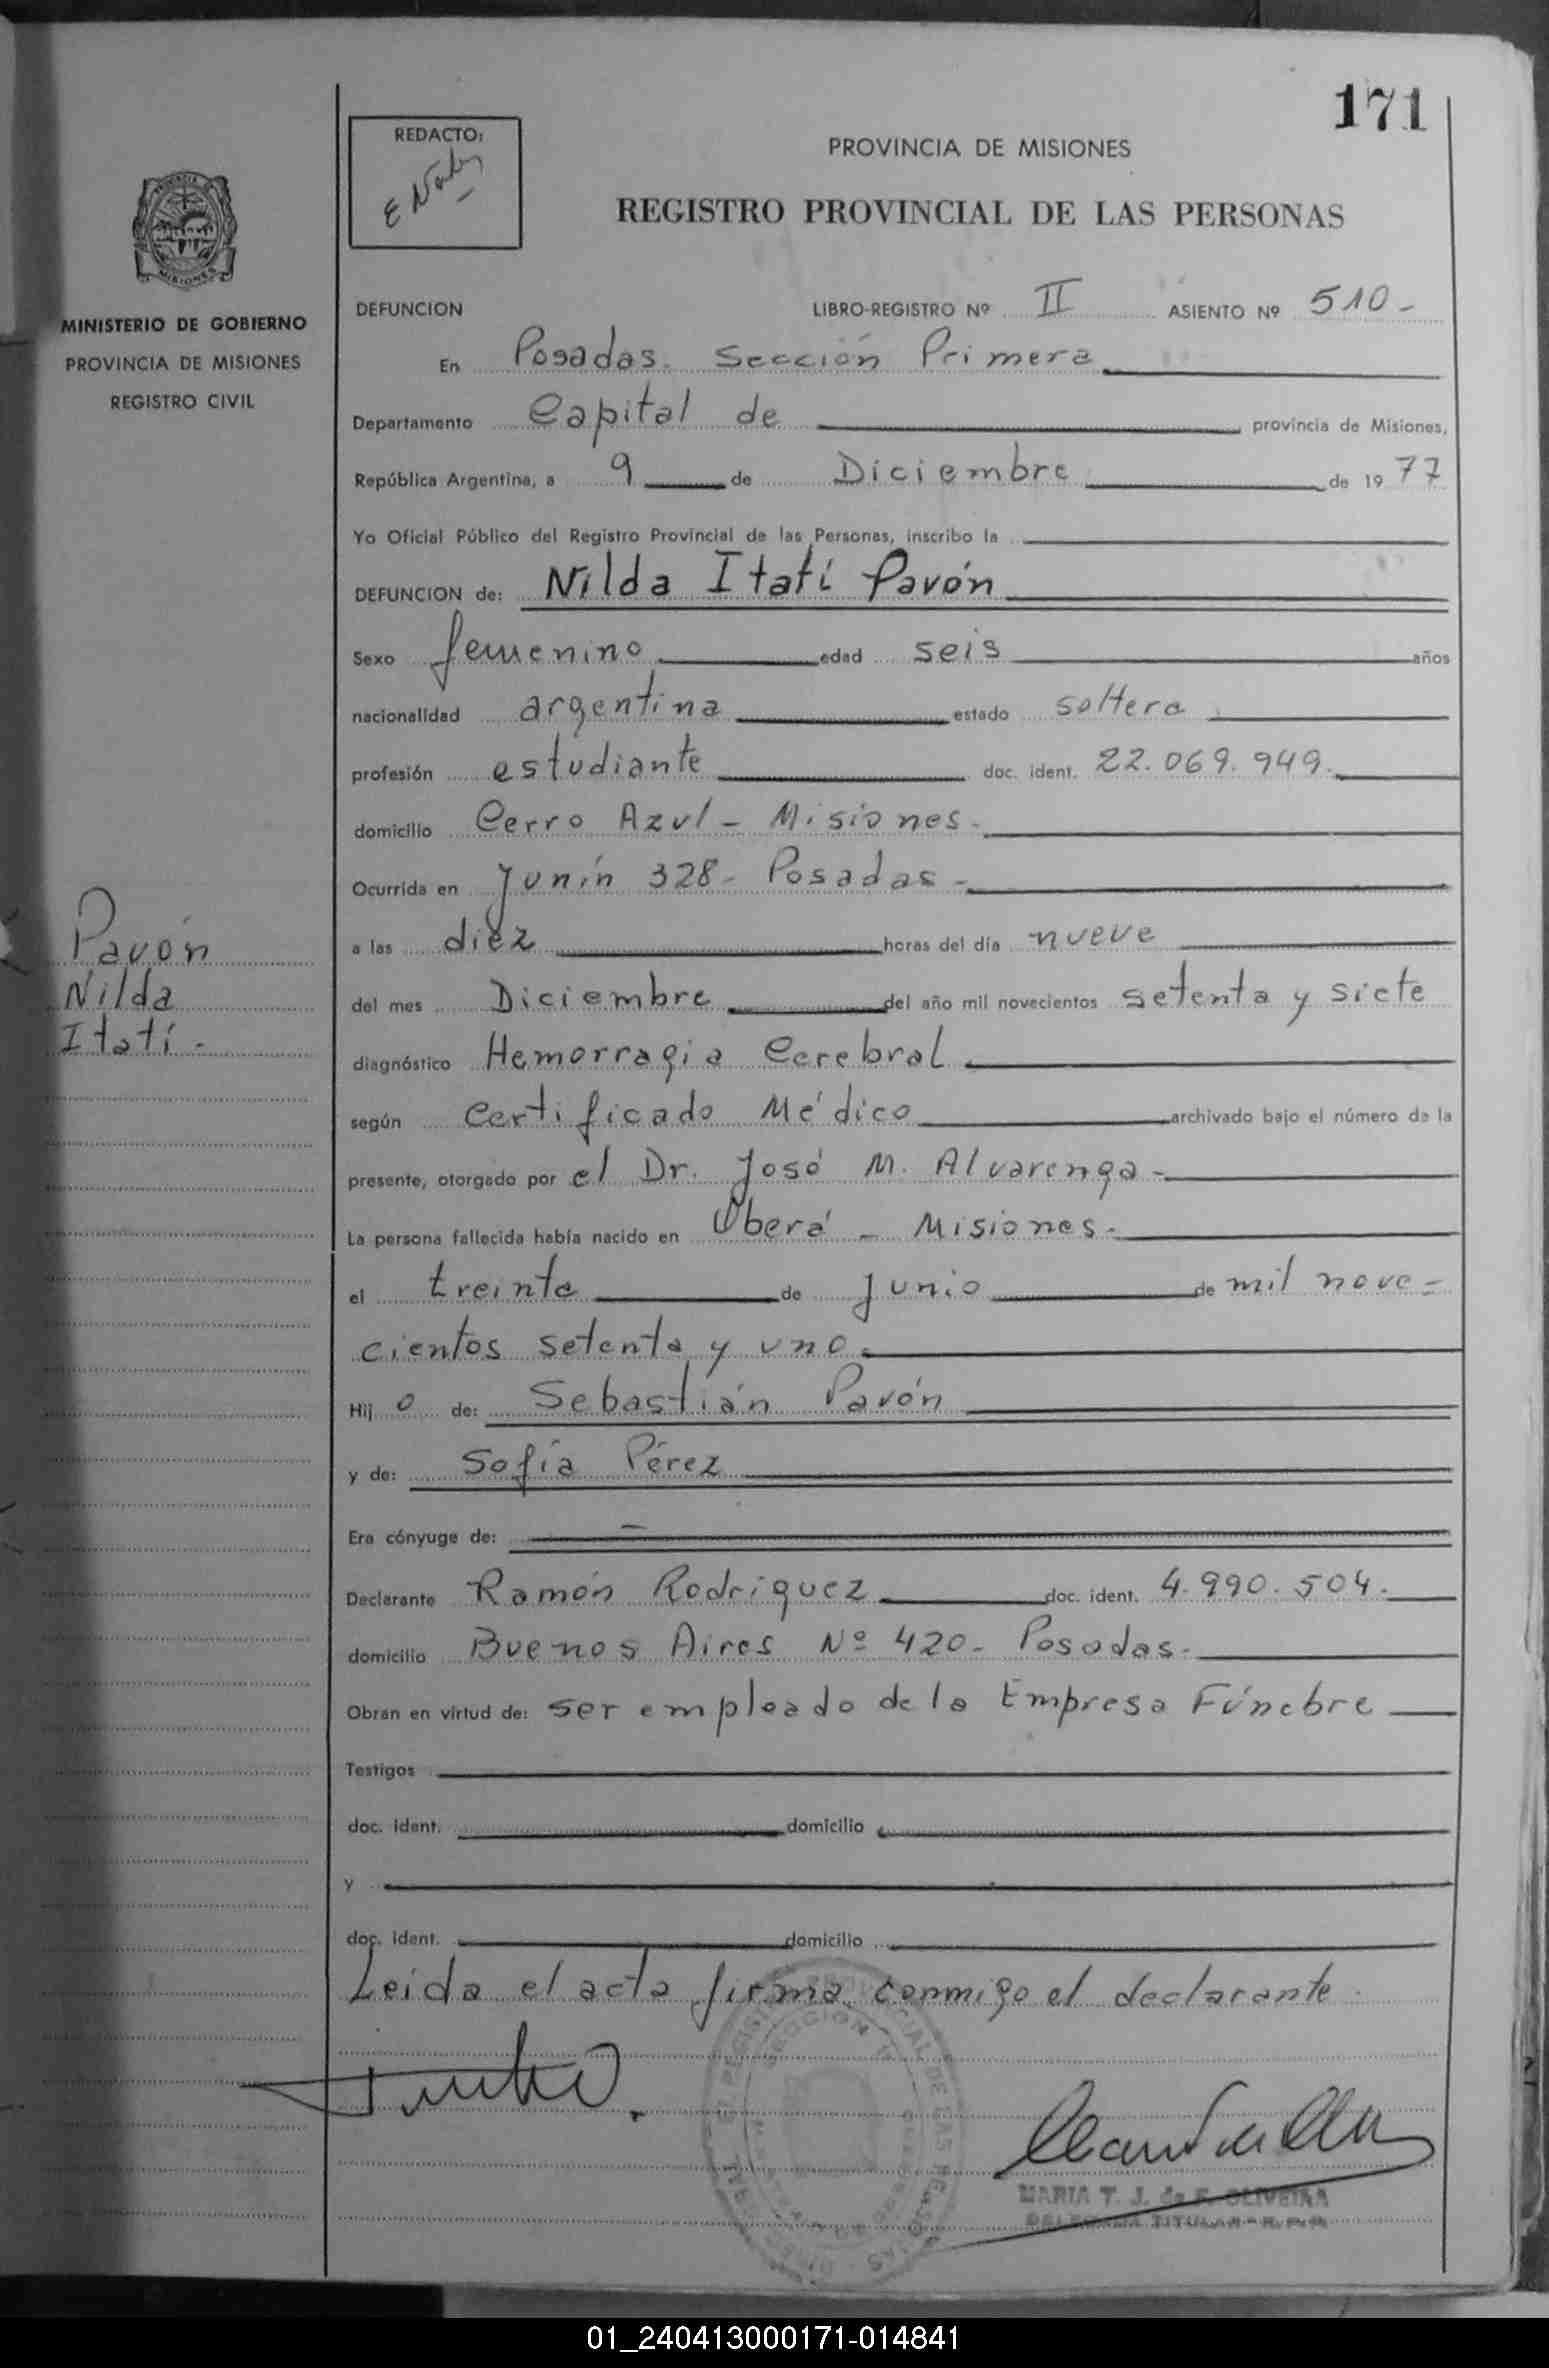 171
REDACTO:
PROVINCIA DE MISIONES
REGISTRO PROVINCIAL DE LAS PERSONAS
MISIONES
MINISTERIO DE GOBIERNO
PROVINCIA DE MISIONES
REGISTRO CIVIL
DEFUNCION LIBRO-REGISTRO Nº II ASIENTO Nº 510-
En Posadas. Sección Primera
Departamento Capital de provincia de Misiones,
República Argentina, a 9 de Diciembre de 1977
Yo Oficial Público del Registro Provincial de las Personas, inscribo la
DEFUNCION de: Nilda Itatí Pavón
Sexo femenino edad seis años
nacionalidad argentina estado soltera
profesión estudiante doc. ident. 22.069.949.
domicilio Cerro Azul - Misiones-
Ocurrida en Junín 328- Posadas-
a las diez horas del día nueve
del mes Diciembre del año mil novecientos setenta y siete
diagnóstico Hemorragia Cerebral
según Certificado Médico archivado bajo el número de la
presente, otorgado por el Dr. José M. Alvarenga-
La persona fallecida había nacido en Oberá - Misiones-
el treinta de junio de mil nove=
cientos setenta y uno.
Hij o de: Sebastián Pavón
y de: Sofía Pérez
Era cónyuge de: -
Declarante Ramón Rodriguez doc. ident. 4.990.504.
domicilio Buenos Aires Nº 420- Posadas-
Obran en virtud de: ser empleado de la Empresa Fúnebre
Testigos
doc. ident. domicilio
y
doc. ident. domicilio
Leida el acta firma conmigo el declarante.
Pavón
Nilda
Itatí-
MARIA T. J. de F. OLIVEIRA
DELEGADA TITULAR - R.P.P.
01_240413000171-014841